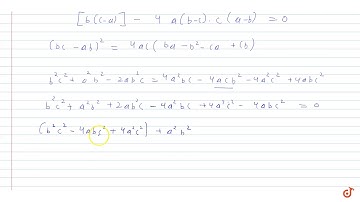 [b(c-a)] - 4 a(b-c)·c(a-b) = 0
(bc - ab)² = 4ac(ba - b² - ca + cb)
b²c² + a²b² - 2ab²c = 4a²bc - 4acb² - 4a²c² + 4abc²
b²c² + a²b² + 2ab²c - 4a²bc + 4a²c² - 4abc² = 0
(b²c² - 4abc² + 4a²c²) + a²b²